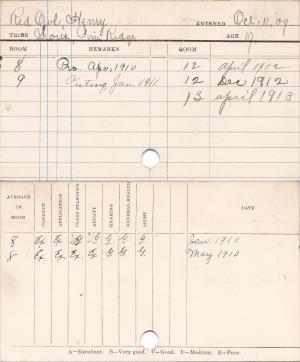 Red Owl, Henry ENTERED Oct-11, 09
TRIBE Sioux Pine Ridge AGE 19
ROOM REMARKS ROOM
8 Pro. Apr. 1910 12 April 1912
9 Jan. 1911 12 Dec 1912
13 april 1913
AVERAGE IN ROOM CONDUCT APPLICATION CLASS STANDING ABILITY HEARING GENERAL HEALTH SIGHT DATE
8 Ex Ex G G G G G Jan. 1910
8 Ex Ex G G G G May 1910
A—Excellent. B—Very good. C—Good. D—Medium. E—Poor.